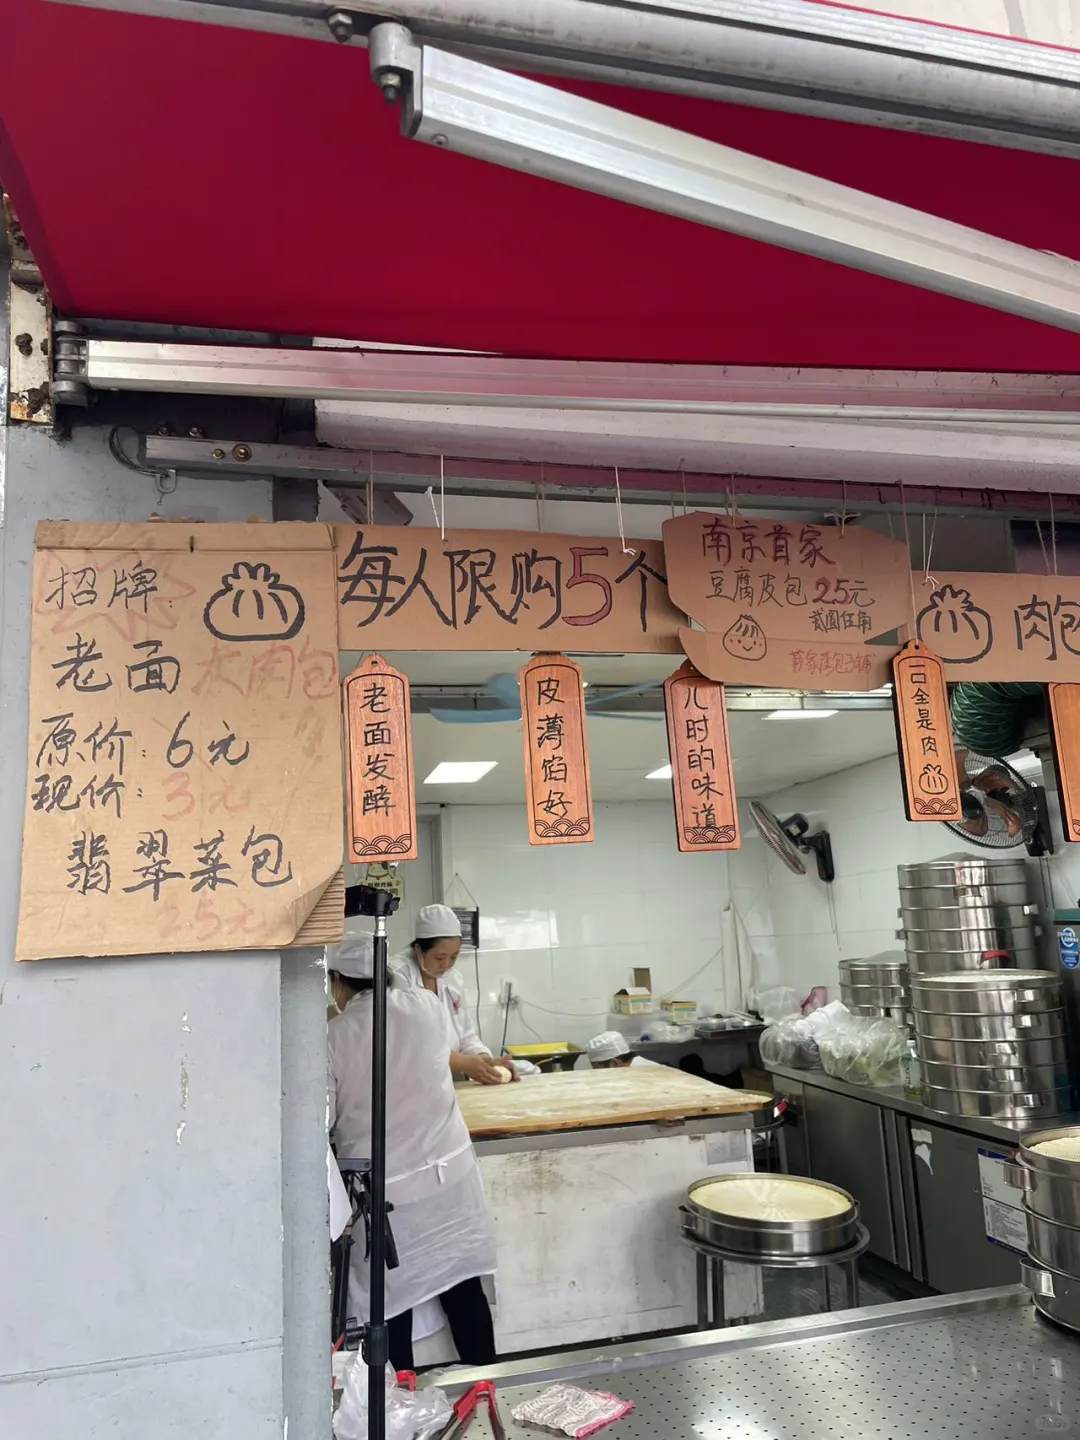 招牌:
老面大肉包
原价:6元
现价:3元
翡翠菜包
2.5元
每人限购5个
南京首家
豆腐皮包2.5元
贰圆伍角
肉包
老面发酵
皮薄馅好
儿时的味道
一口全是肉